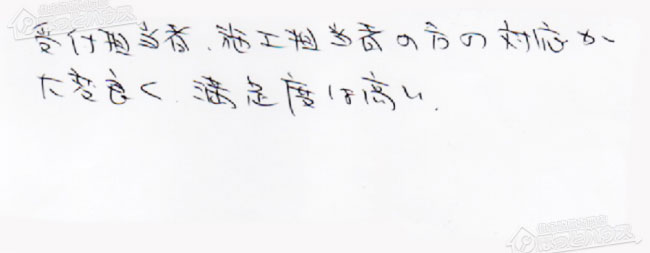 受付担当者、施工担当者の方の対応が
大変良く、満足度は高い。